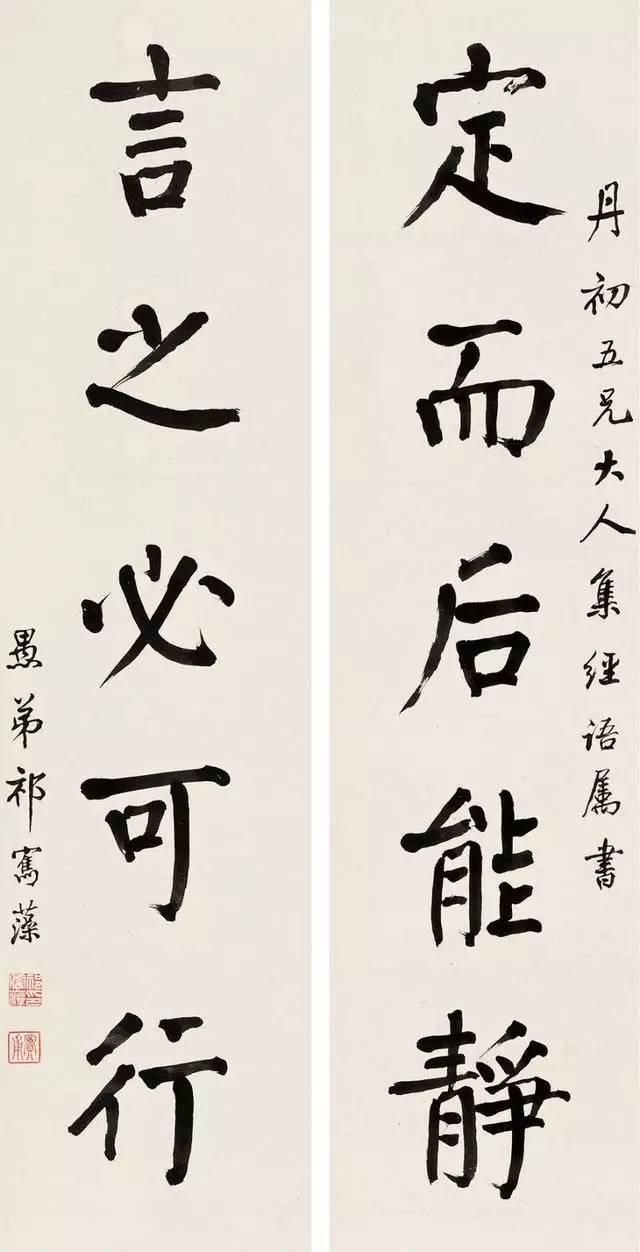 丹初五兄大人集經語属書
定而后能靜
言之必可行
愚弟祁寯藻